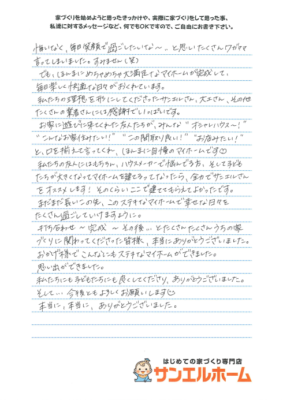 家づくりを始めようと思ったきっかけや、実際に家づくりをして思った事、
私達に対するメッセージなど、何でもOKですので、ご自由にお書き下さい。
悔いなく、毎日笑顔で過ごしたいな…。と思いたくさんワガママ
言ってしまいました。すみません(笑)
でも、ほんまにめちゃめちゃ大満足なマイホームが完成して、
毎日楽しく幸せな日々がおくれています。
私たちの理想を形にしてくださったサンエルさん、大工さん、その他
たくさんの業者さんにも感謝でいっぱいです。
お家に遊びに来てくれた友人たちが、みんな "オシャレハウスー!"
"こんなお家住みたい!!" "この間取り良い!" "お店みたい!"
と、口を揃えて言ってくれ、ほんまに自慢のマイホームです
私たちの友人にはもちろん、ハウスメーカーで悩んでる方、そして子ども
たちが大きくなってマイホームを建てるってなったら、全力でサンエルさん
をオススメします!そのくらいここで建ててもらえてよかったです。
まだまだ長いこの先、このステキなマイホームで幸せな日々を
たくさん過ごしていけますように。
打ち合わせ〜完成〜その後…とたくさんたくさんうちの家
づくりに関わってくださった皆様、本当にありがとうございました。
おかげ様でこんなにもステキなマイホームができました。
思い出ができました。
私たちにも子どもたちにも良くしてくださり、ありがとうございました。
そして…今後ともよろしくお願いします
本当に、本当に、ありがとうございました。
はじめての家づくり専門店
サンエルホーム